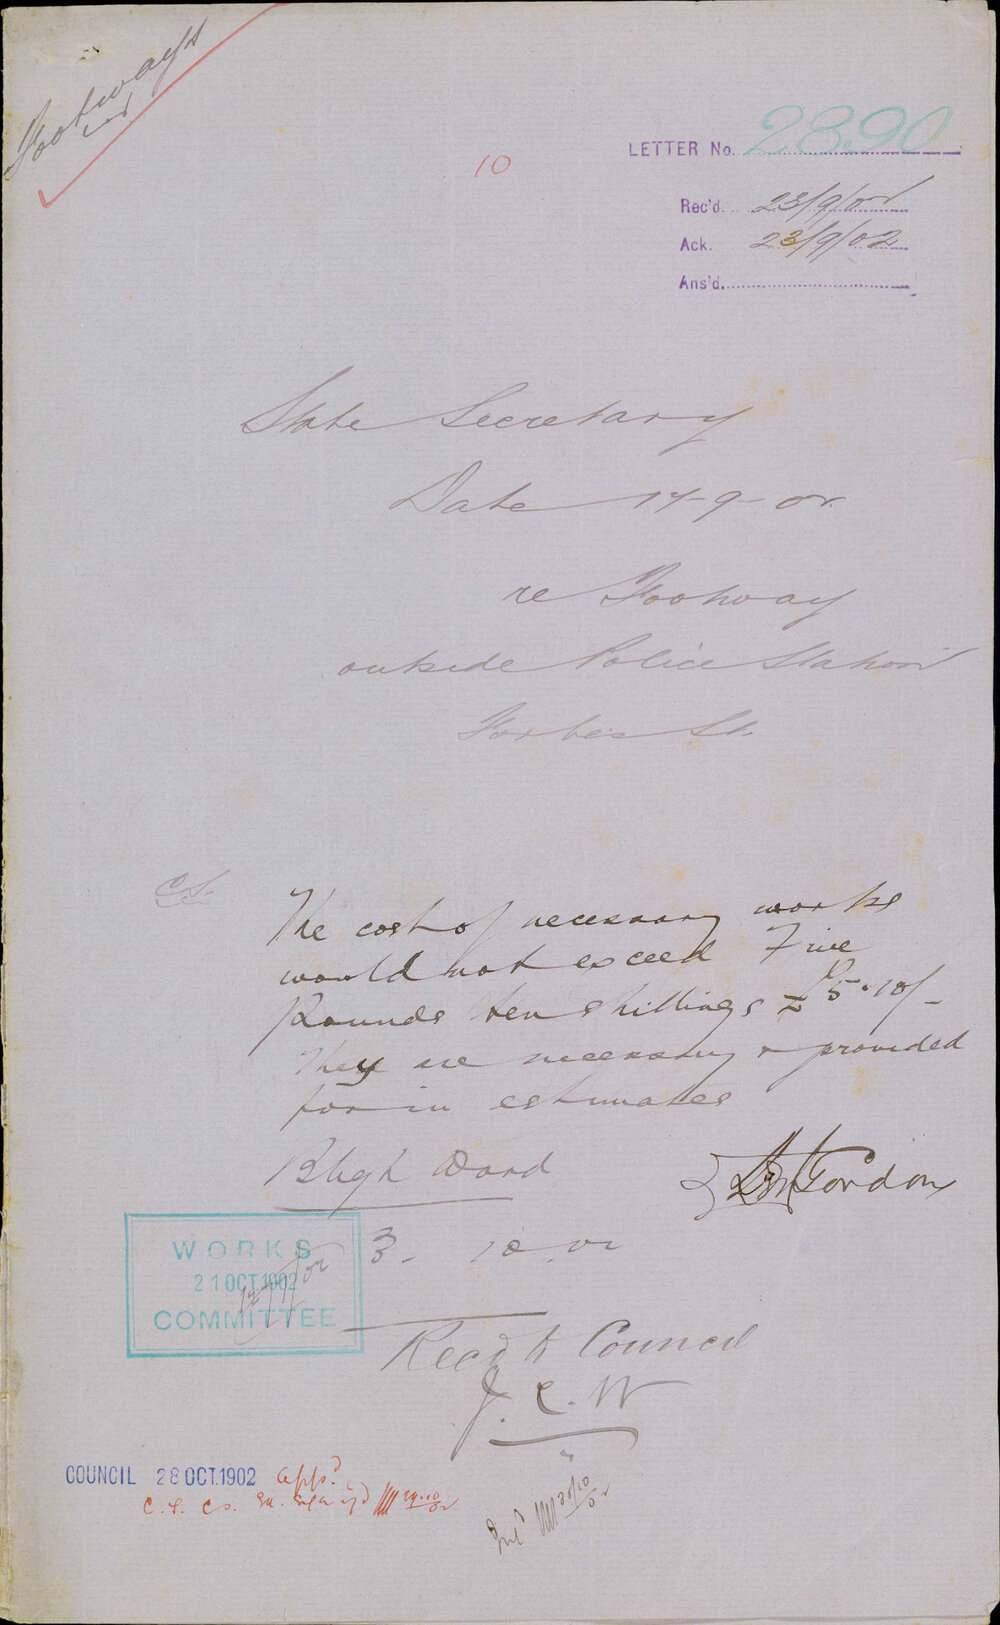 Footways
10
LETTER No. 2890
Rec'd. 23/9/02
Ack. 23/9/02
Ans'd.
State Secretary
Date 17-9-02
re Footway
outside Police Station
Forbes St.
C.S.
The cost of necessary works
would not exceed Five
Pounds ten shillings £5.10/-
They are necessary & provided
for in estimates
Bligh Ward
Gordon
3. 10. 02
WORKS
21 OCT 1902
COMMITTEE
Recd to Council
J. C. W
COUNCIL 28 OCT. 1902 appd.
C. S. 29.10/02
20/10/02